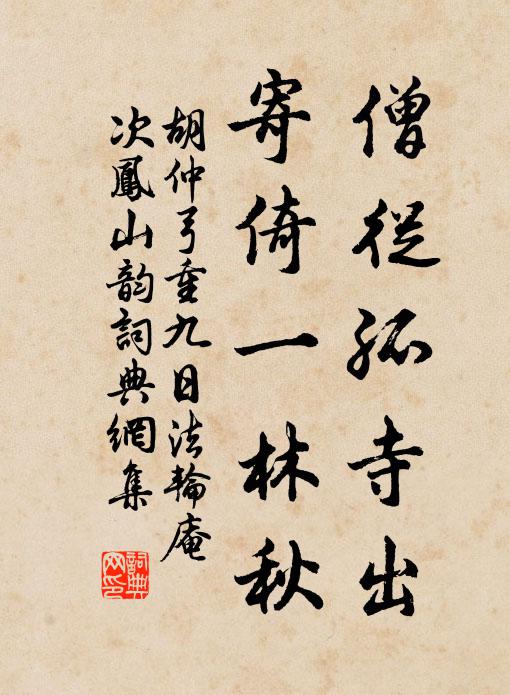 僧從孤寺出
寄倚一林秋
胡仲弓重九日法輪庵
次鳳山韵詞典網集
詞典網印